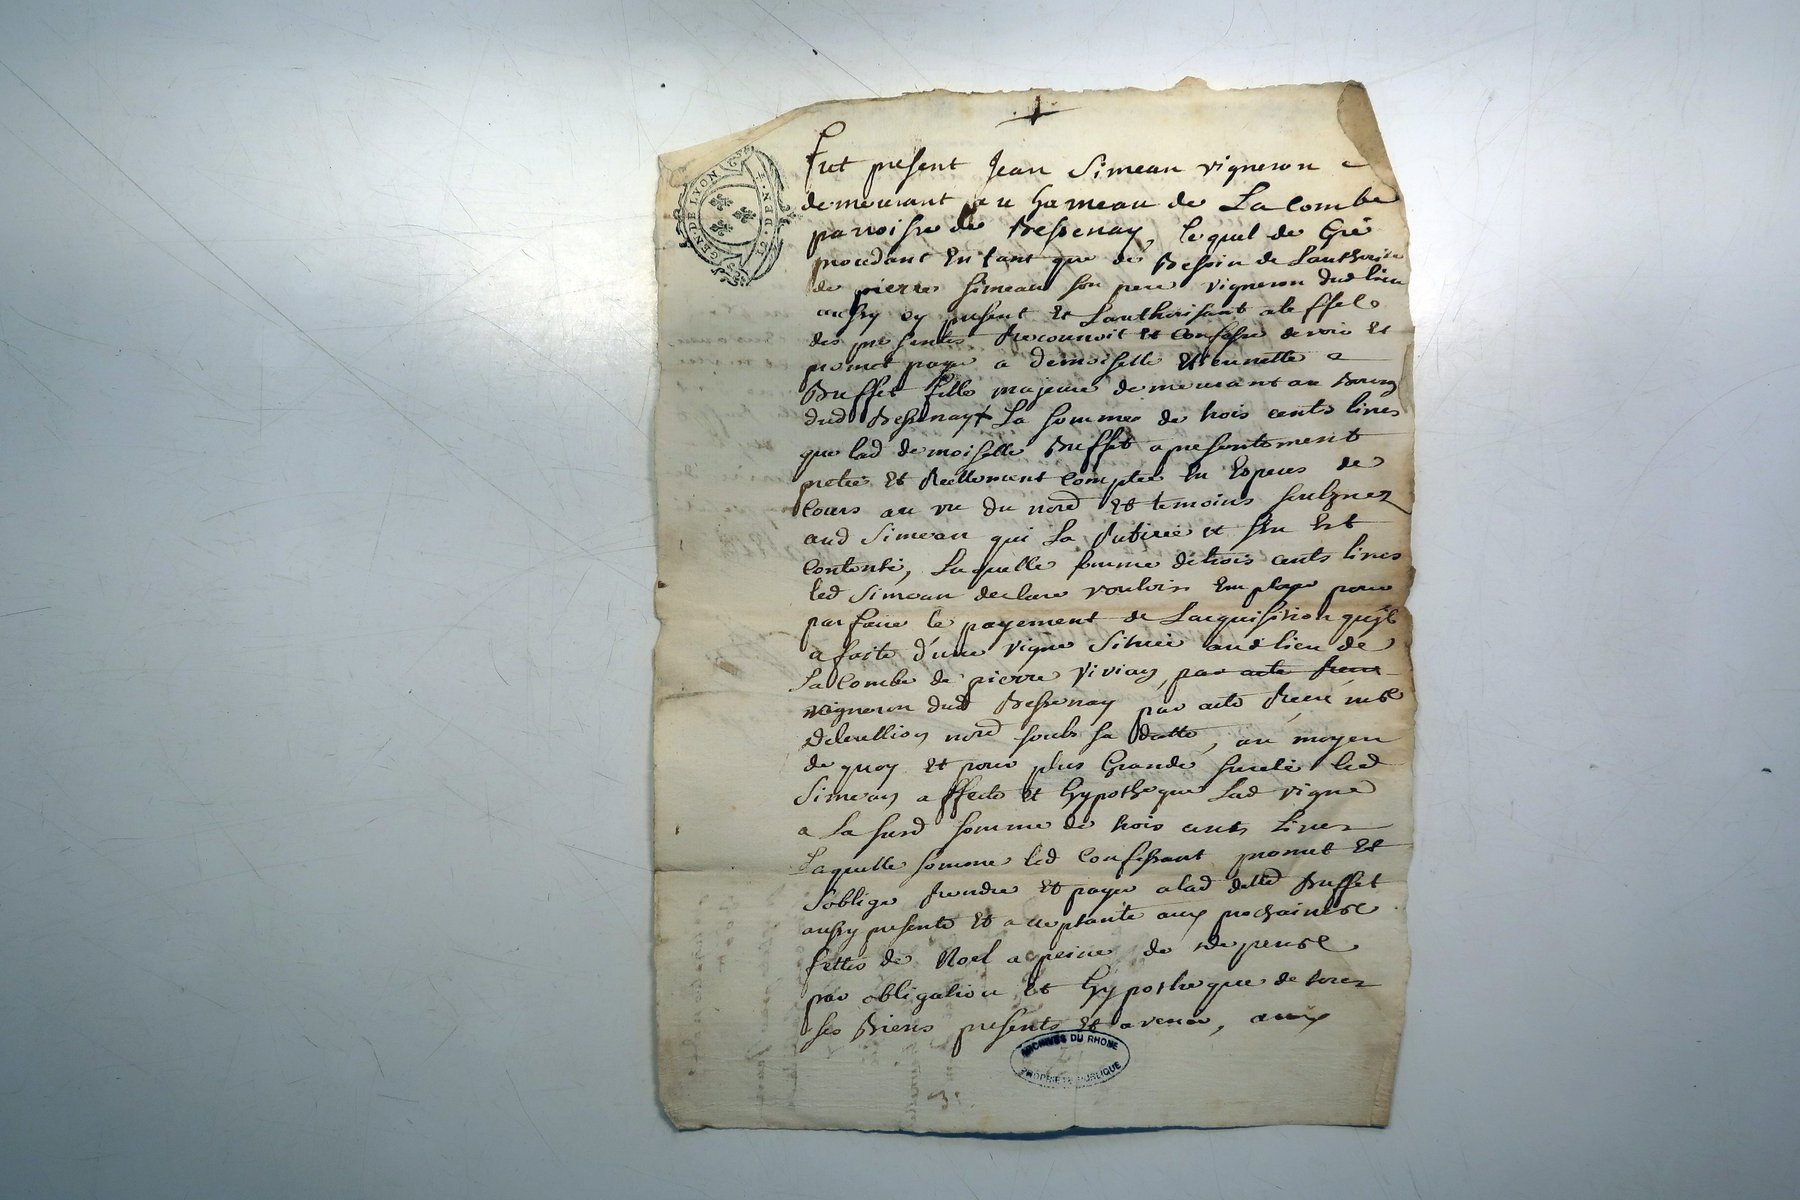 GEN. DE LYON
Fut present Jean Simean vigneron
demeurant au hameau de La Combe
parroisse de Bessenay, lequel de Gré
procedant En tant que de Besoin de Lauthorité
de pierre Simean son pere vigneron dud lieu
aussy cy present Et Lauthorisant a leffet
des presentes Reconnoit Et Confesse devoir Et
promet payer a demoiselle Estiennette
Buffet fille majeure demeurant au Bourg
dud Bessenay La somme de trois cents livres
que lad demoiselle Buffet a presentement
pretée Et Reellement Comptée En Especes de
Cours au vu du nore Et temoins soulznez
aud Simean qui La Retirée et sen Est
Contenté, Laquelle somme de trois cents livres
led Simean declare vouloir Employer pour
parfaire le payement de Lacquisition quil
a faite d'une vigne Située aud lieu de
La Combe de pierre Vivian, par acte Receu
vigneron dud Bessenay par acte Receu
nore soubs sa datte, au moyen
de quoy Et pour plus Grande sureté led
Simean affecte Et hypotheque Lad vigne
a La susd somme de trois cents livres
Laquelle somme led Confessant promet Et
soblige Rendre Et payer a lad delle Buffet
aussy presente Et acceptante aux prochaines
festes de Noel a peine de
par obligation Et hypotheque de tous
ses Biens presents Et avenir, aux
ARCHIVES DU RHONE
PROPRIETE PUBLIQUE